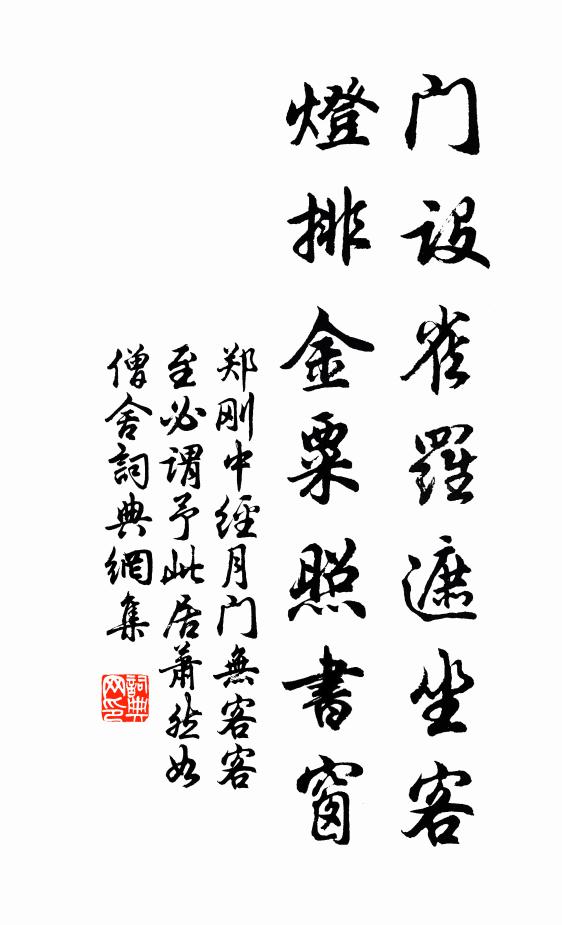 门设雀罗遮坐客
燈排金粟照書窗
郑刚中經月门無客客
至必谓予此居萧然如
僧舍詞典網集
詞典网印